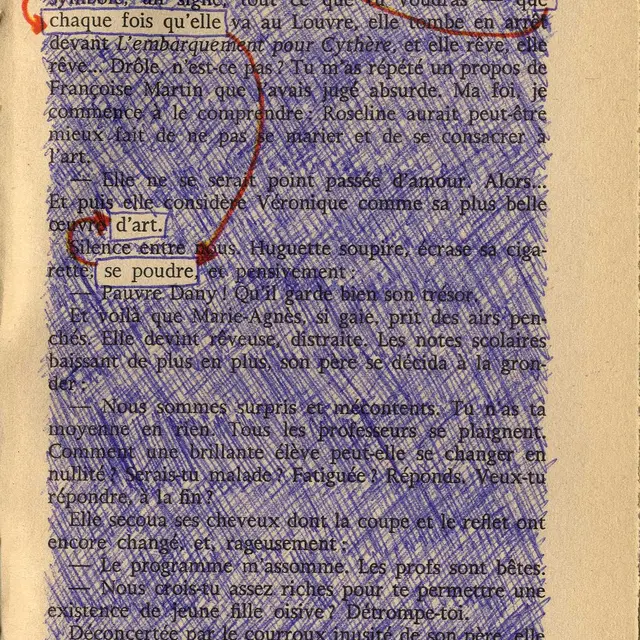 symbole, un signe, tout ce que tu voudras — que
chaque fois qu'elle va au Louvre, elle tombe en arrêt
devant L'embarquement pour Cythère, et elle rêve, elle
rêve... Drôle, n'est-ce pas ? Tu m'as répété un propos de
Françoise Martin que j'avais jugé absurde. Ma foi, je
commence à le comprendre : Roseline aurait peut-être
mieux fait de ne pas se marier et de se consacrer à
l'art.
— Elle ne se serait point passée d'amour. Alors...
Et puis elle considère Véronique comme sa plus belle
œuvre d'art.
Silence entre nous. Huguette soupire, écrase sa ciga-
rette, se poudre, et pensivement :
— Pauvre Dany ! Qu'il garde bien son trésor.
Et voilà que Marie-Agnès, si gaie, prit des airs pen-
chés. Elle devint rêveuse, distraite. Les notes scolaires
baissant de plus en plus, son père se décida à la gron-
der :
— Nous sommes surpris et mécontents. Tu n'as ta
moyenne en rien. Tous les professeurs se plaignent.
Comment une brillante élève peut-elle se changer en
nullité ? Serais-tu malade ? Fatiguée ? Réponds. Veux-tu
répondre, à la fin ?
Elle secoua ses cheveux dont la coupe et le reflet ont
encore changé, et, rageusement :
— Le programme m'assomme. Les profs sont bêtes.
— Nous crois-tu assez riches pour te permettre une
existence de jeune fille oisive ? Détrompe-toi.
Déconcertée par le courroux inusité de son père, elle